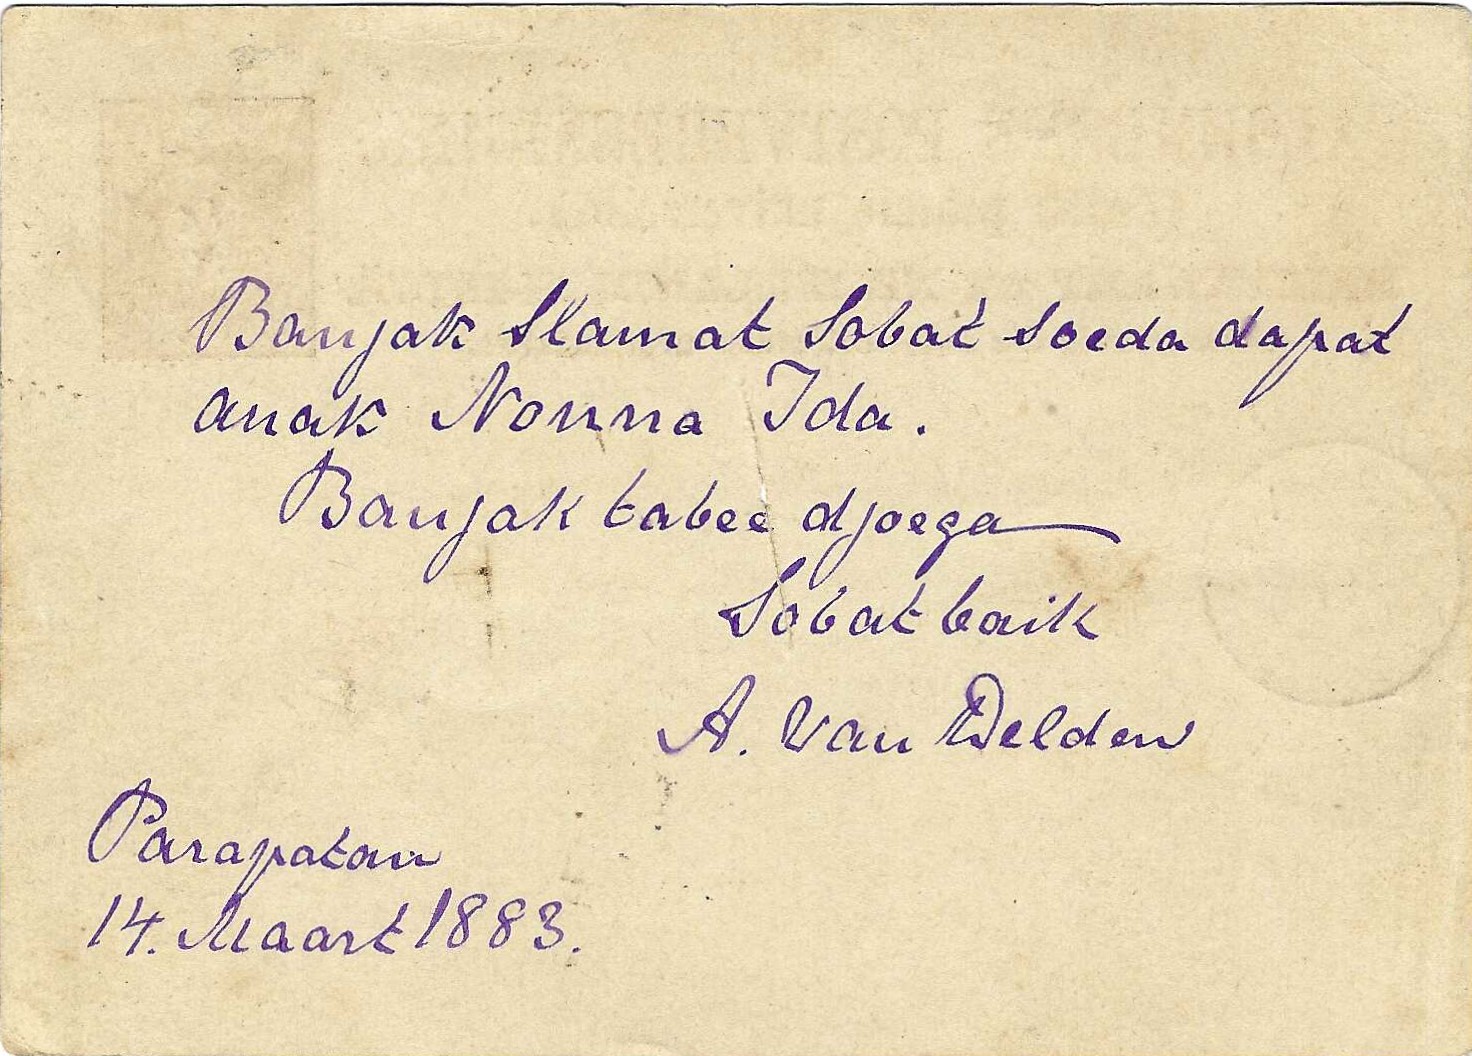 Banjak Slamat Sobat soeda dapat
anak Nonna Ida.
Banjak tabee djoega
Sobat baik
A. van Delden
Parapatan
14. Maart 1883.